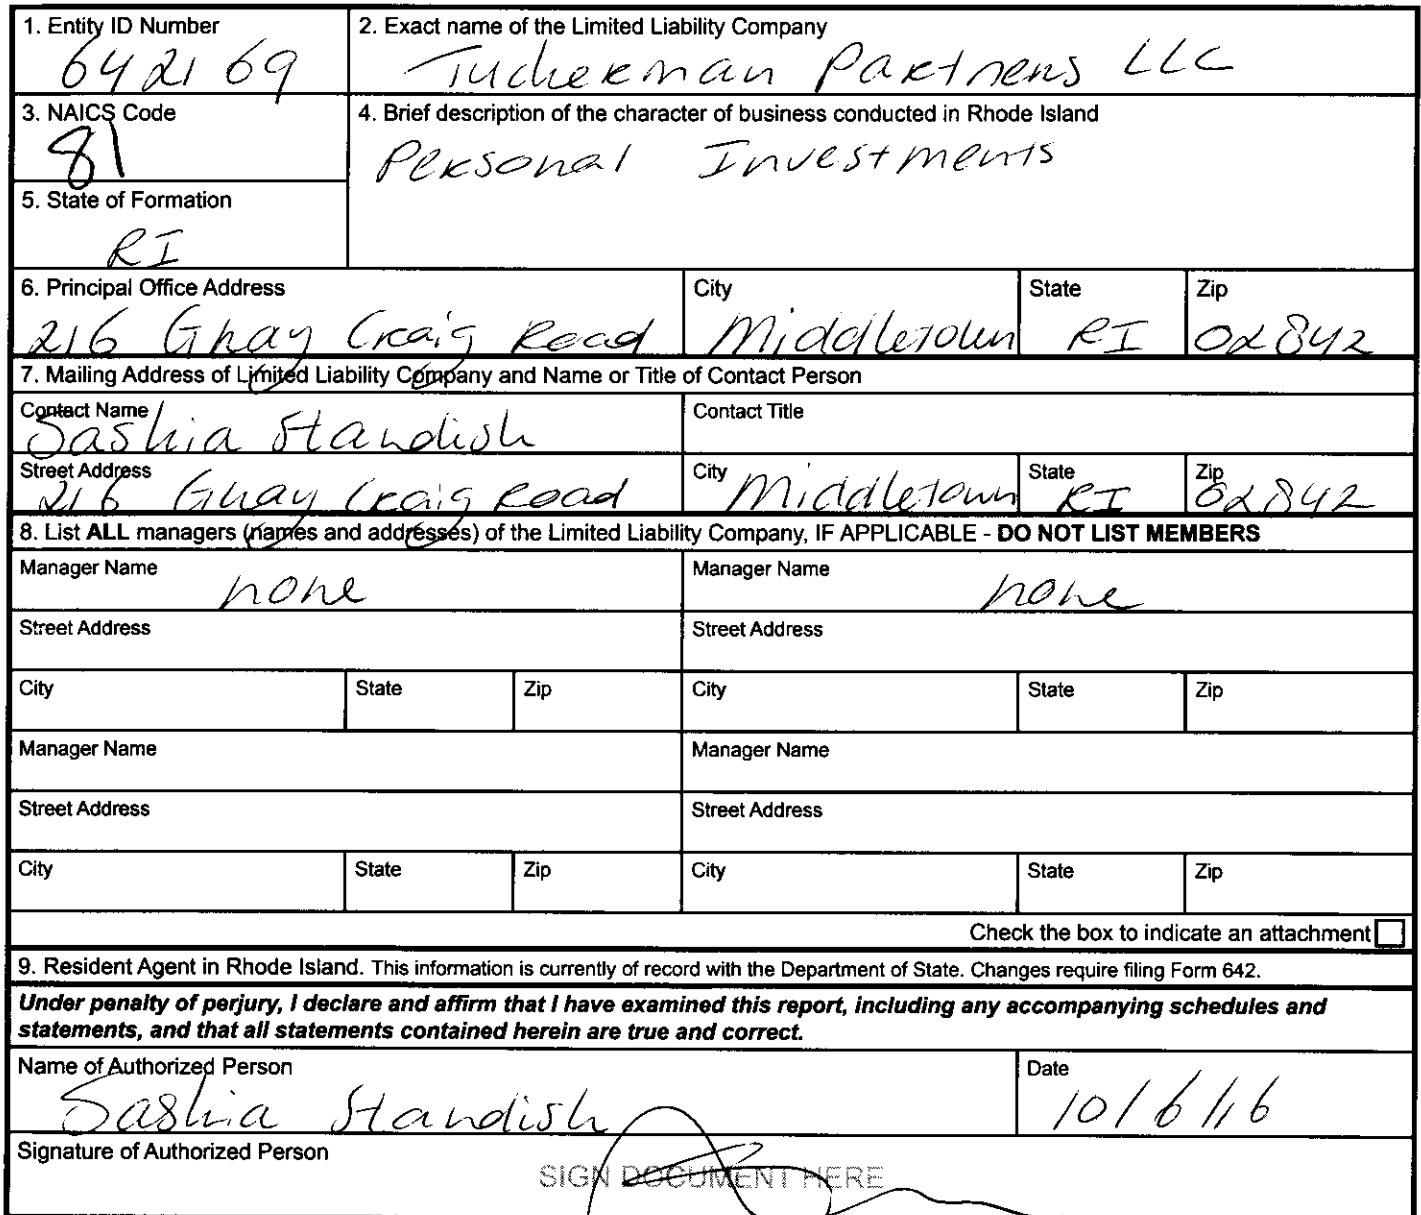 1. Entity ID Number
642169
2. Exact name of the Limited Liability Company
Tuckerman Partners LLC
3. NAICS Code
81
4. Brief description of the character of business conducted in Rhode Island
Personal Investments
5. State of Formation
RI
6. Principal Office Address
216 Gray Craig Road
City
Middletown
State
RI
Zip
02842
7. Mailing Address of Limited Liability Company and Name or Title of Contact Person
Contact Name
Saskia Standish
Contact Title
Street Address
216 Gray Craig Road
City
Middletown
State
RI
Zip
02842
8. List ALL managers (names and addresses) of the Limited Liability Company, IF APPLICABLE - DO NOT LIST MEMBERS
Manager Name
none
Manager Name
none
Street Address
Street Address
City State Zip City State Zip
Manager Name
Manager Name
Street Address
Street Address
City State Zip City State Zip
Check the box to indicate an attachment
9. Resident Agent in Rhode Island. This information is currently of record with the Department of State. Changes require filing Form 642.
Under penalty of perjury, I declare and affirm that I have examined this report, including any accompanying schedules and
statements, and that all statements contained herein are true and correct.
Name of Authorized Person
Saskia Standish
Date
10/6/16
Signature of Authorized Person
SIGN DOCUMENT HERE